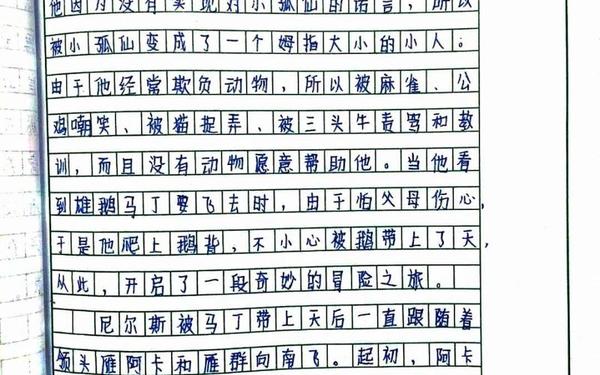 他因为没有实现对小狐仙的诺言，所以
被小狐仙变成了一个姆指大小的小人。
由于他经常欺负动物，所以被麻雀、公
鸡嘲笑、被猫捉弄、被三头牛责骂和教
训，而且没有动物愿意帮助他。当他看
到雄鹅马丁要飞去时，由于怕父母伤心，
于是他爬上鹅背，不小心被鹅带上了天，
从此，开启了一段奇妙的冒险之旅。
尼尔斯被马丁带上天后一直跟随着
领头雁阿卡和雁群向南飞。起初，阿卡